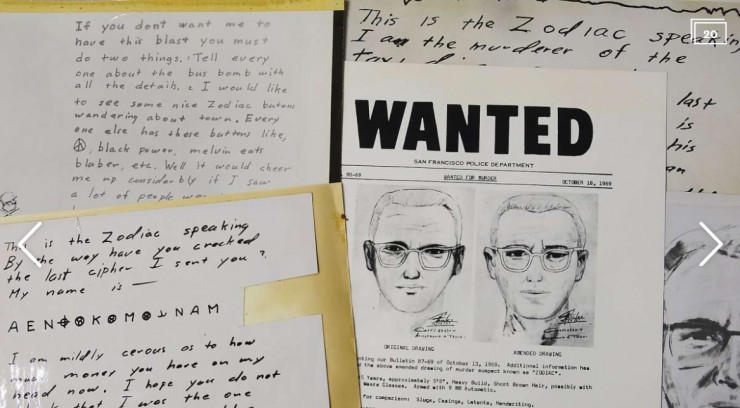 If you dont want me to
have this blast you must
do two things. 1 Tell every
one about the bus bomb with
all the details. 2 I would like
to see some nice Zodiac butons
wandering about town. Every
one else has these buttons like,
☮, black power, melvin eats
blaber, etc. Well it would cheer
me up considerbly if I saw
a lot of people
This is the Zodiac speaking
I am the murderer of the
last
is
his
20
This is the Zodiac speaking
By the way have you cracked
the last cipher I sent you ?
My name is —
A E N K M N A M
I am mildly cerous as to how
much money you have on my
head now. I hope you do not
that I was the one
WANTED
SAN FRANCISCO POLICE DEPARTMENT
90-69 WANTED FOR MURDER OCTOBER 18, 1969
ORIGINAL DRAWING AMENDED DRAWING
our Bulletin 87-69 of October 13, 1969. Additional information has
the above amended drawing of murder suspect known as "ZODIAC".
Years, approximately 5'8", Heavy Build, Short Brown Hair, possibly with
Glasses. Armed with 9 MM Automatic.
for comparison: Slugs, Casings, Latents, Handwriting.